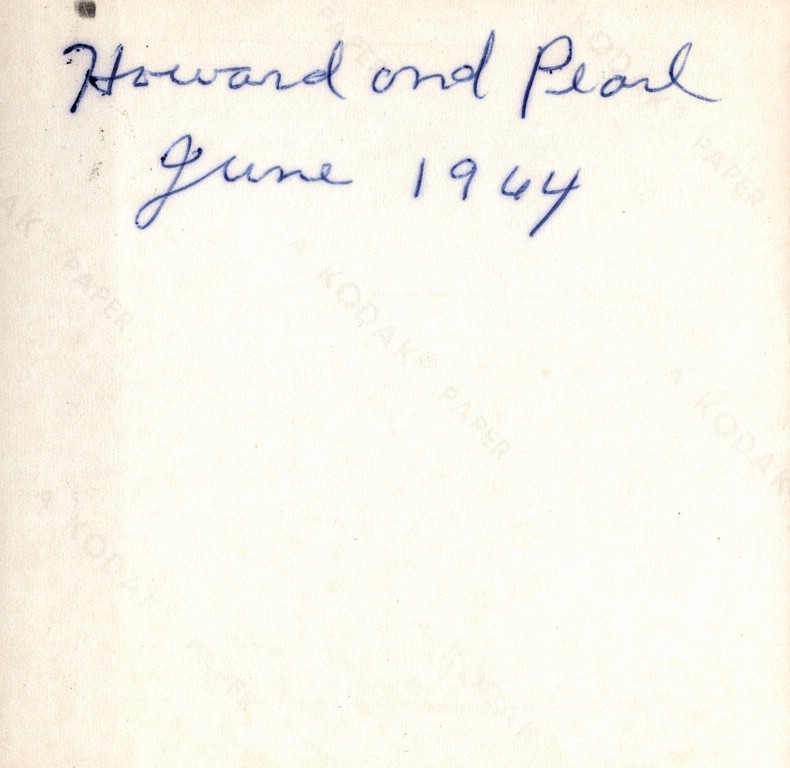 Howard and Pearl
June 1964
PAPER
KODAK® PAPER
AK® PAPER
A KODAK® PAPER
A KODAK
A KODAK® PAPER
A KODAK